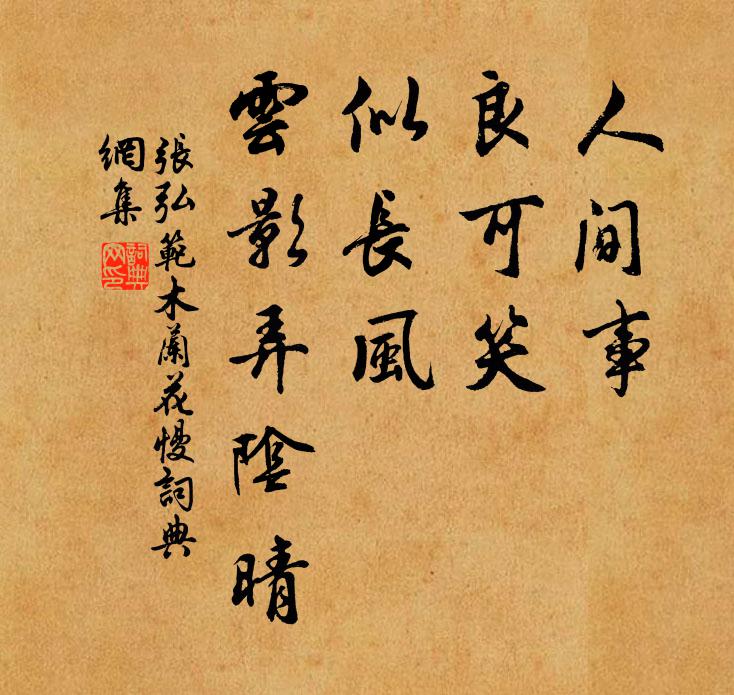 人間事
良可笑
似長風
雲影弄陰晴
張弘範木蘭花慢詞典
網集
詞典
网印